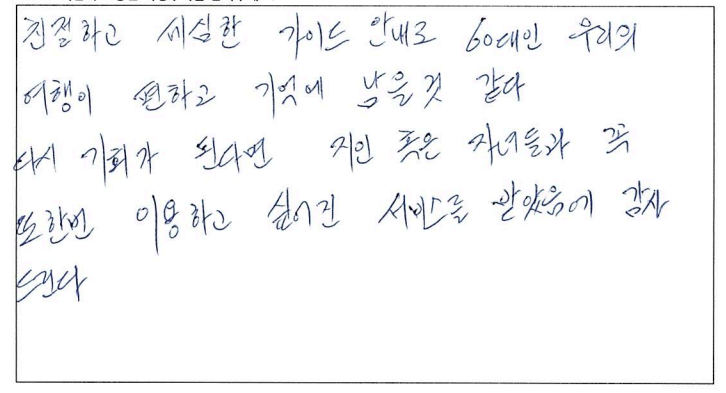 친절하고 세심한 가이드 안내로 60대인 우리의
여행이 편하고 기억에 남을것 같다
다시 기회가 된다면 지인 혹은 자녀들과 꼭
또한번 이용하고 싶어진 서비스를 받았음에 감사
드린다